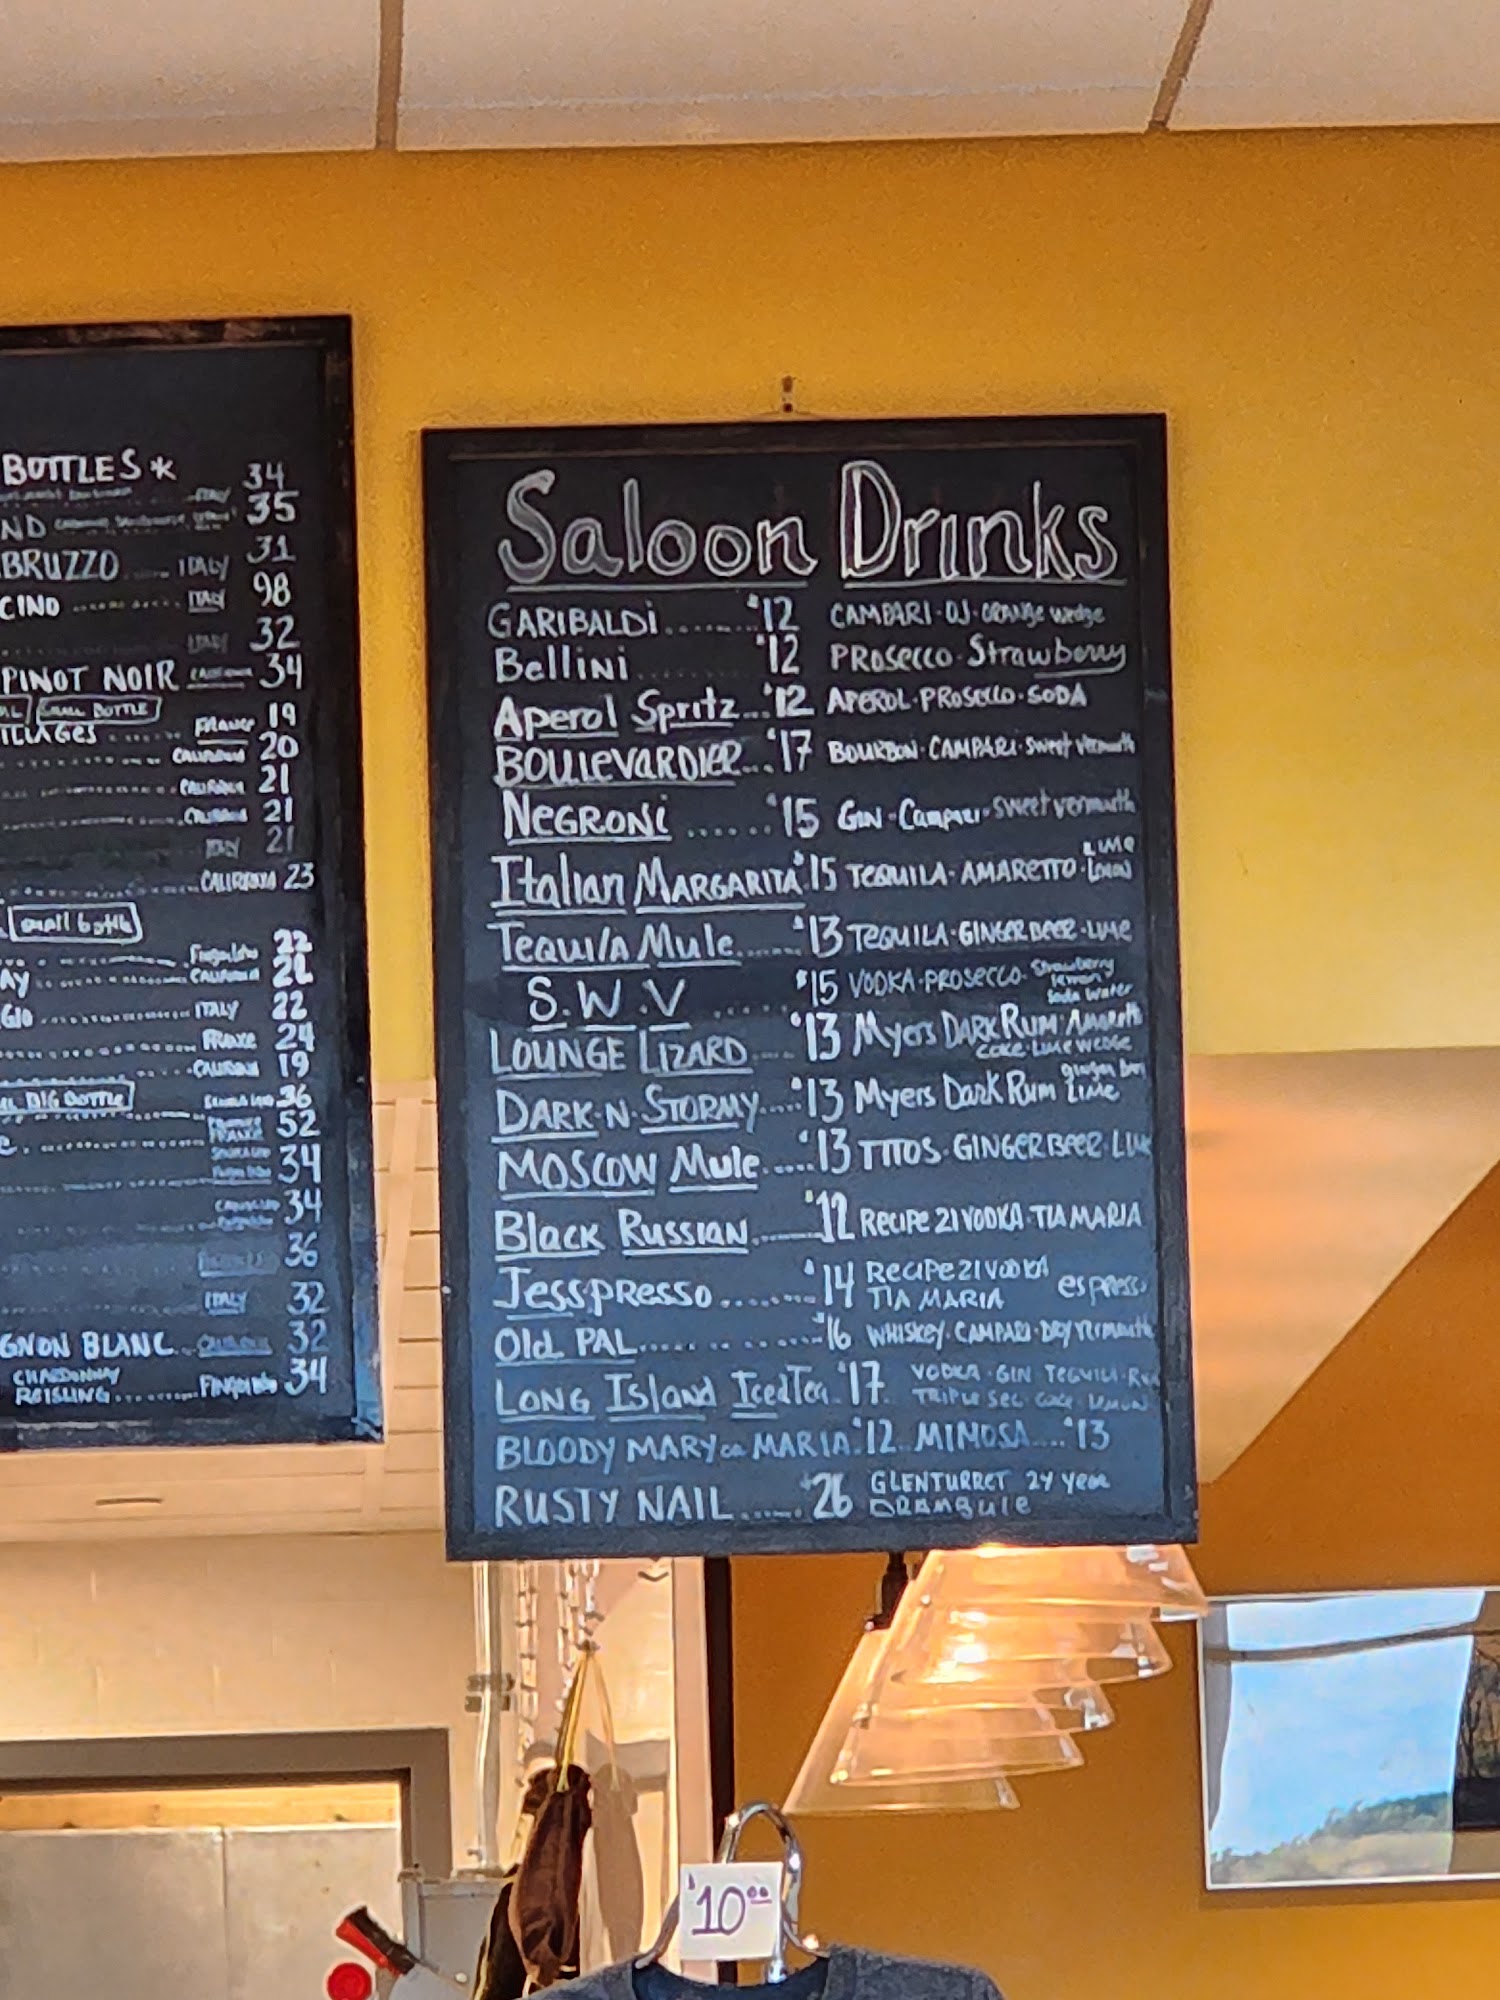 BOTTLES *
34
ITALY 35
ND
BRUZZO ITALY 31
CINO ITALY 98
ITALY 32
PINOT NOIR 34
SMALL BOTTLE
ILLAGES FRANCE 19
CALIFORNIA 20
CALIFORNIA 21
CALIFORNIA 21
ITALY 21
CALIFORNIA 23
small bottle
22
AY CALIFORNIA 22
GIO ITALY 22
FRANCE 24
CALIFORNIA 19
BIG BOTTLE 36
FRANCE 52
34
34
36
ITALY 32
GNON BLANC 32
CHARDONNAY
REISLING 34
Saloon Drinks
GARIBALDI $12 CAMPARI · OJ · ORANGE wedge
Bellini $12 PROSECCO · Strawberry
Aperol Spritz $12 APEROL · PROSECCO · SODA
BOULEVARDIER $17 BOURBON · CAMPARI · Sweet vermouth
NEGRONI $15 GIN · Campari · sweet vermouth
Italian MARGARITA $15 TEQUILA · AMARETTO · LIME
Tequila Mule $13 TEQUILA · GINGER BEER · LIME
S.W.V $15 VODKA · PROSECCO · Strawberry
lemon
soda water
LOUNGE LIZARD $13 Myers DARK RUM · Amaretto
COKE · LIME WEDGE
DARK·N·STORMY $13 Myers Dark Rum ginger beer
LIME
MOSCOW Mule $13 TITOS · GINGER BEER · LIME
Black Russian $12 Recipe 21 VODKA · TIA MARIA
Jess·presso $14 RECIPE 21 VODKA
TIA MARIA espresso
Old PAL $16 WHISKEY · CAMPARI · DRY vermouth
LONG Island Iced Tea $17 VODKA · GIN TEQUILA · RUM
TRIPLE SEC COKE LEMON
BLOODY MARY or MARIA $12 MIMOSA $13
RUSTY NAIL $26 GLENTURRET 24 year
DRAMBUIE
$10.00